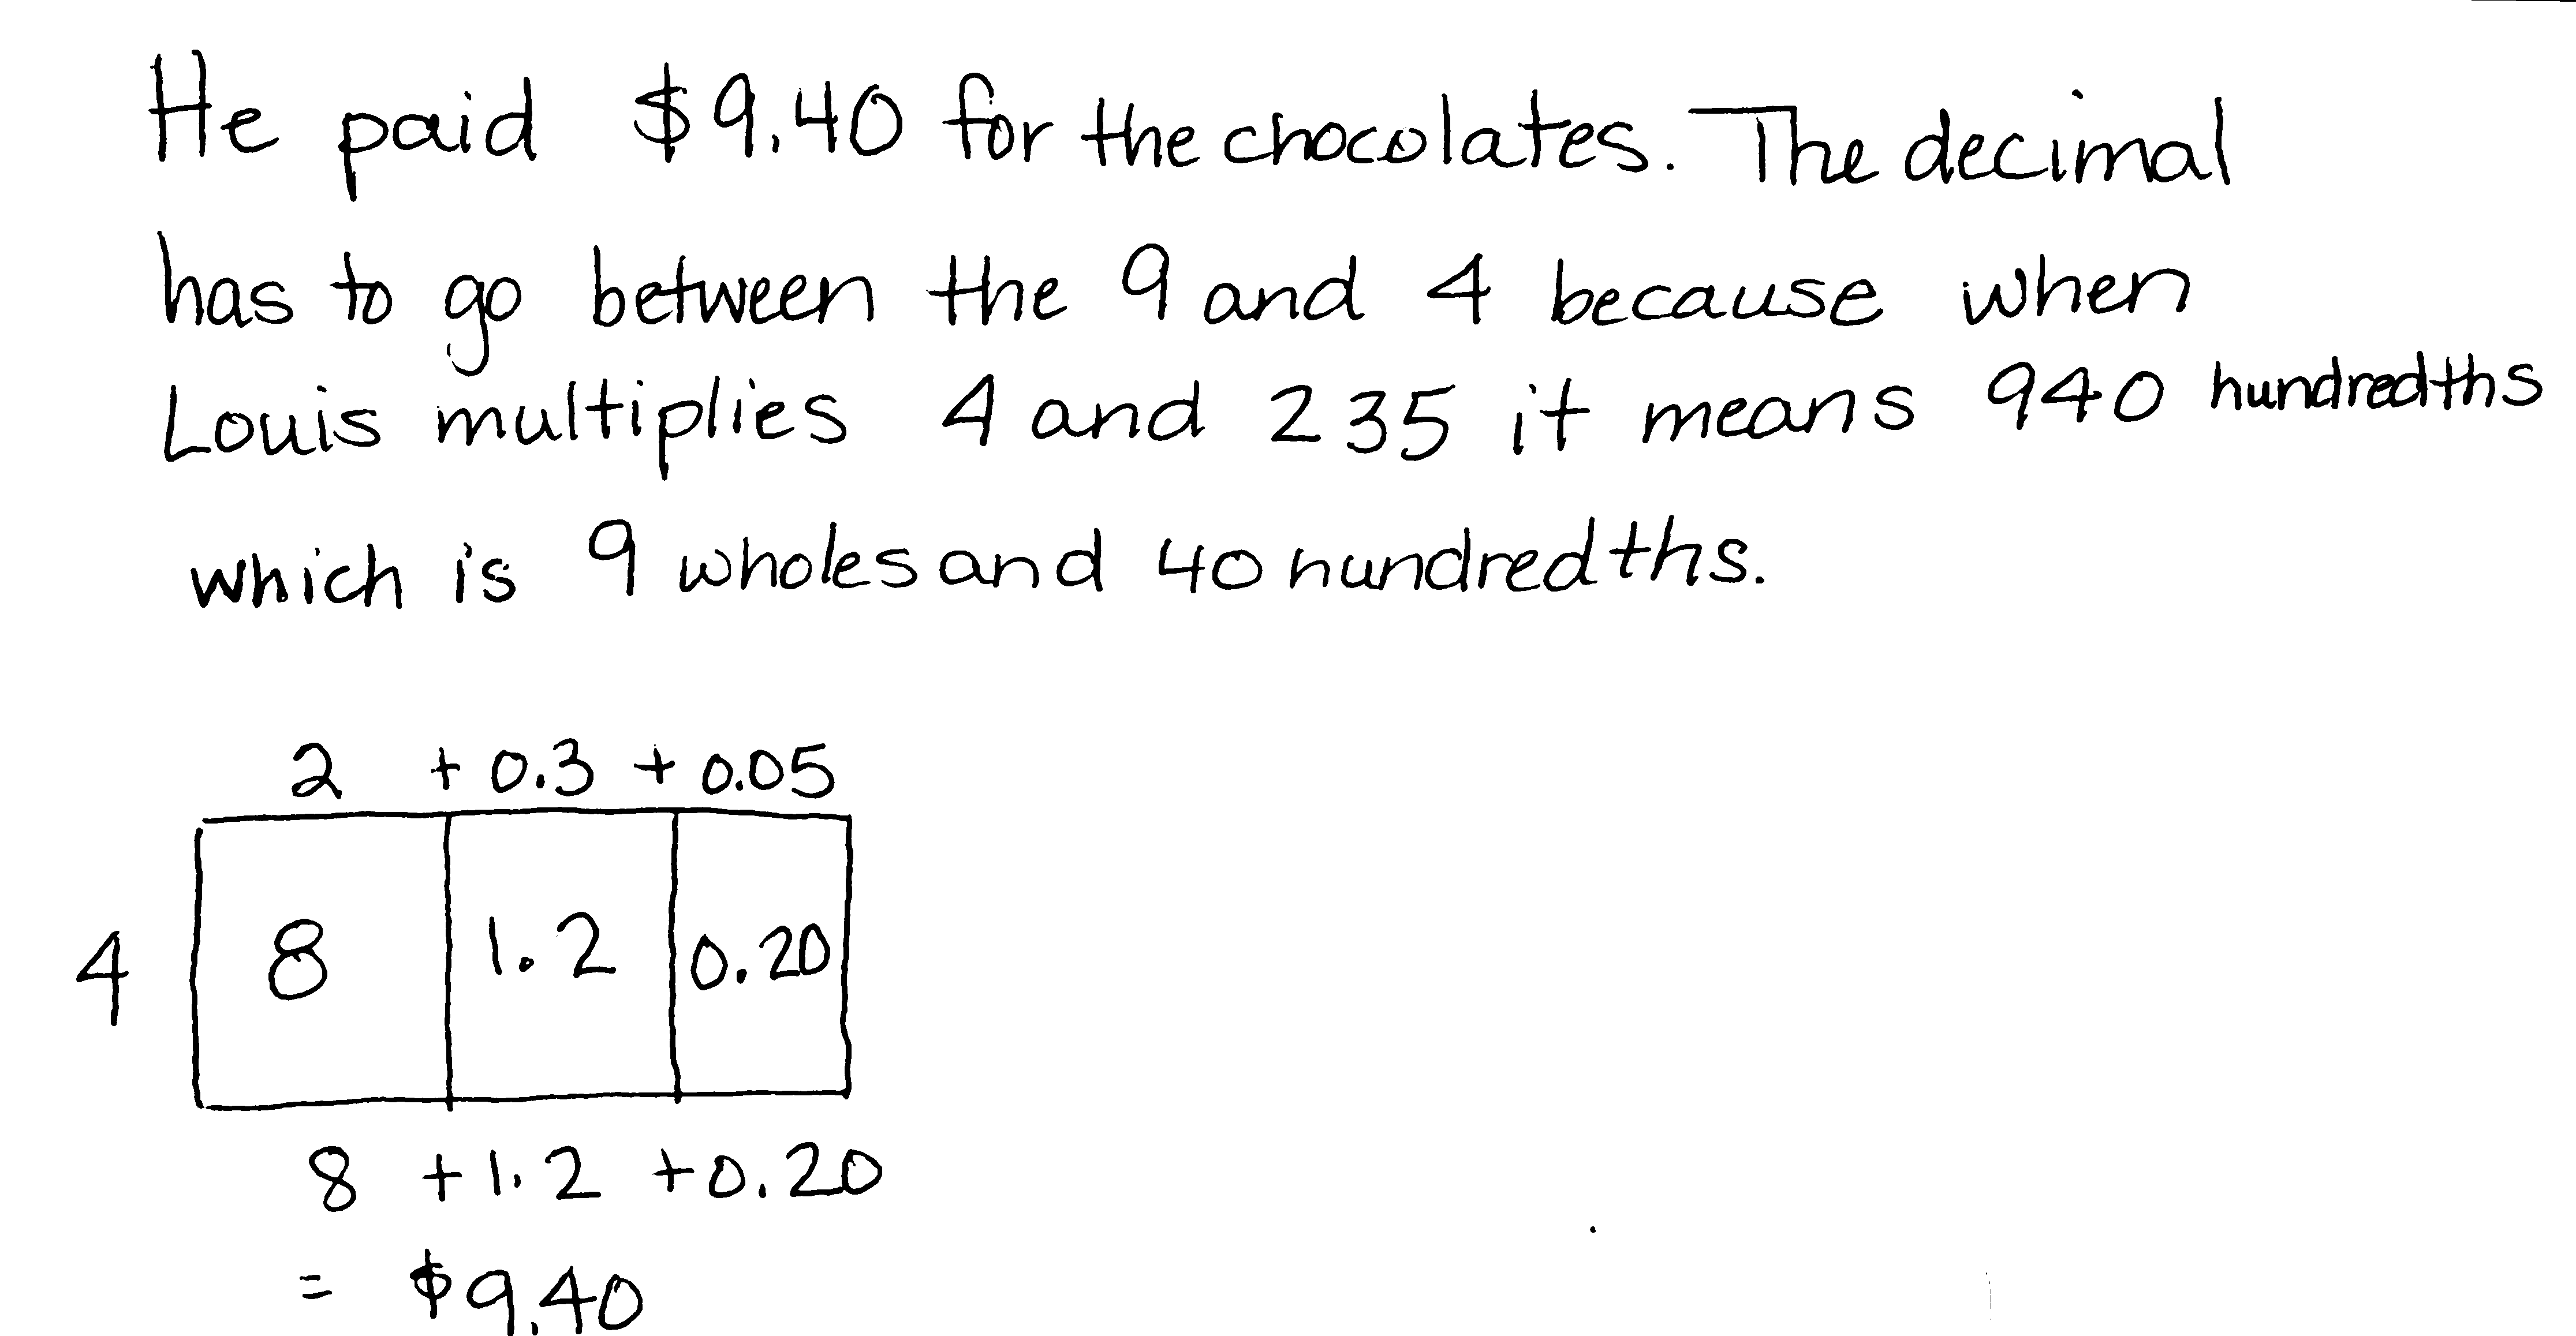 He paid $9.40 for the chocolates. The decimal
has to go between the 9 and 4 because when
Louis multiplies 4 and 235 it means 940 hundredths
which is 9 wholes and 40 hundredths.
2 + 0.3 + 0.05
4 8 1.2 0.20
8 + 1.2 + 0.20
= $9.40